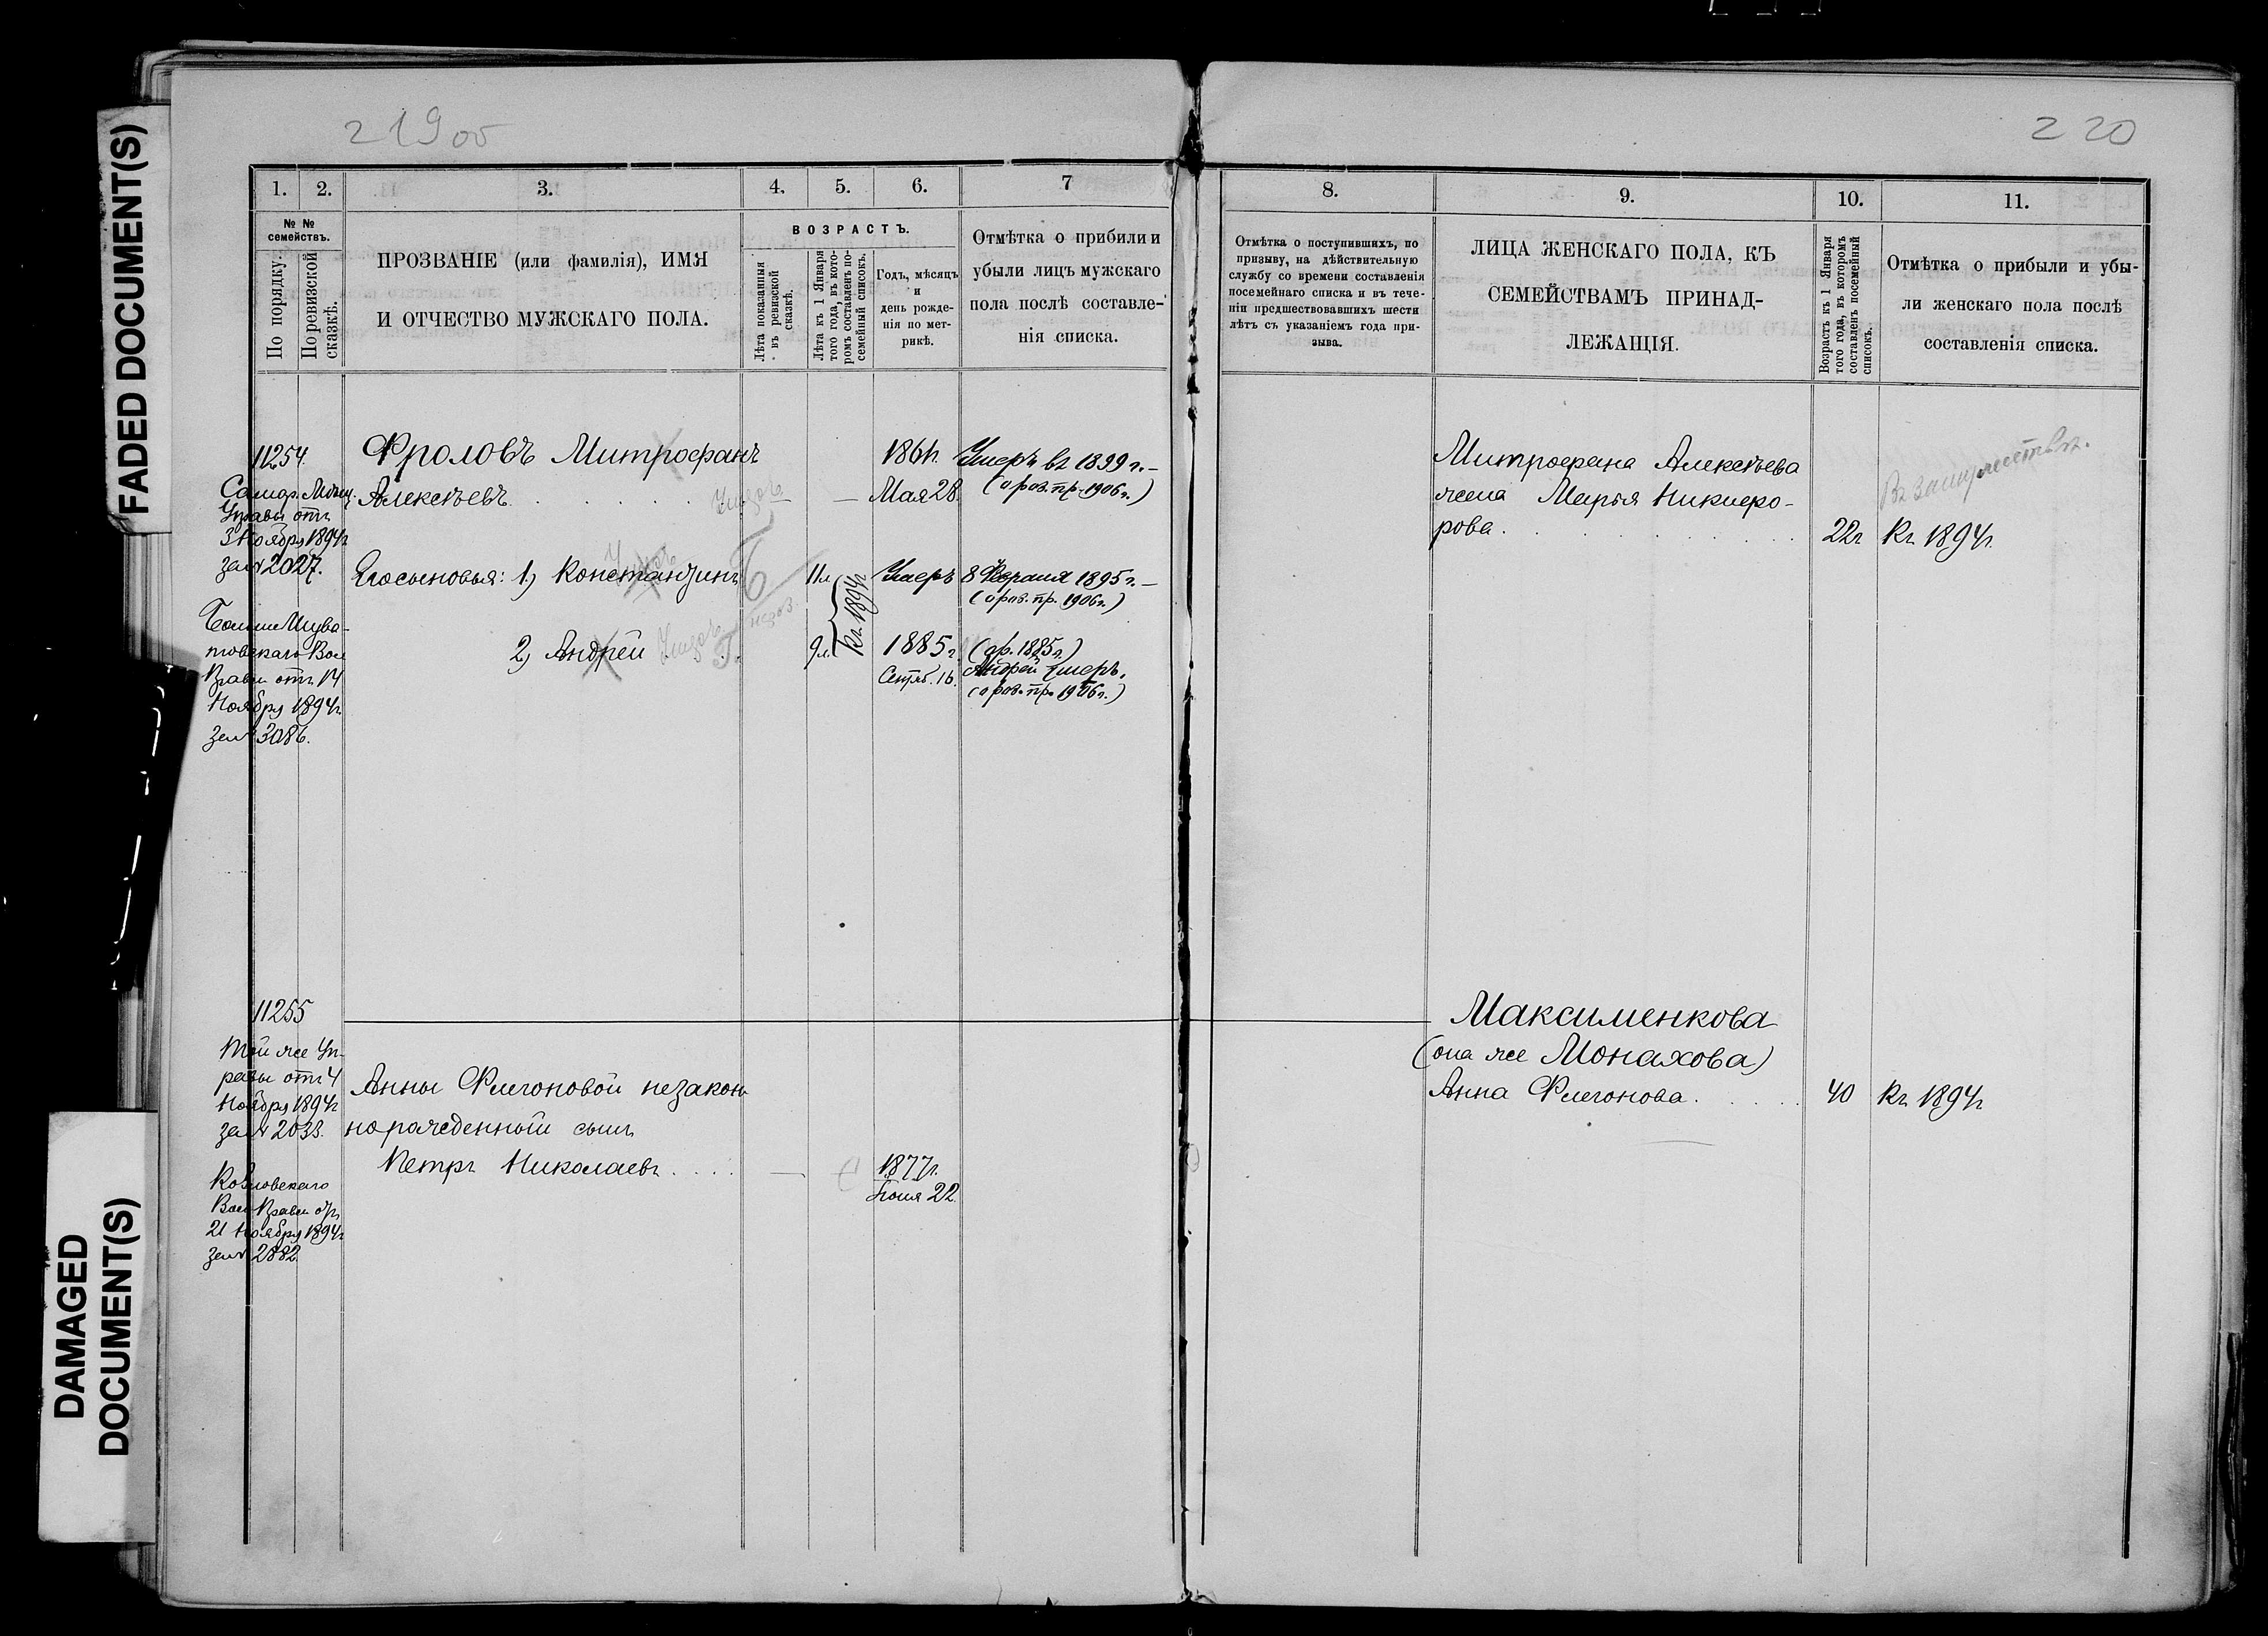 FADED DOCUMENT(S)
DAMAGED
DOCUMENT(S)
219 об
220
1.
2.
3.
4.
5.
6.
7
8.
9.
10.
11.
№ №
семействъ.
По порядку.
По ревизской
сказкѣ.
ПРОЗВАНІЕ (или фамилія), ИМЯ
И ОТЧЕСТВО МУЖСКАГО ПОЛА.
ВОЗРАСТЪ.
Лѣта показанныя
въ ревизской
сказкѣ.
Лѣта къ 1 Января
того года, въ кото-
ромъ составленъ по-
семейный списокъ.
Годъ, мѣсяцъ
и
день рожде-
нія по мет-
рикѣ.
Отмѣтка о прибыли и
убыли лицъ мужскаго
пола послѣ составле-
нія списка.
Отмѣтка о поступившихъ, по
призыву, на дѣйствительную
службу со времени составленія
посемейнаго списка и въ тече-
ніи предшествовавшихъ шести
лѣтъ съ указаніемъ года при-
зыва.
ЛИЦА ЖЕНСКАГО ПОЛА, КЪ
СЕМЕЙСТВАМЪ ПРИНАД-
ЛЕЖАЩІЯ.
Возрастъ къ 1 Января
того года, въ которомъ
составленъ посемейный
списокъ.
Отмѣтка о прибыли и убы-
ли женскаго пола послѣ
составленія списка.
11254.
Самар. Мѣщ.
Управы отъ
3 Ноября 1894 г.
за № 2027.
Правл. отъ 14
Ноября 1894 г.
за № 3086.
Фроловъ Митрофанъ
Алексѣевъ
Умеръ
Его сыновья: 1) Константинъ
Умеръ
2) Андрей
Умеръ
11 л
9 л
Къ 1894 г.
Мая 28.
Умеръ въ 1899 г. —
(о роз. пр. 1906 г.)
Умеръ 8 Февраля 1895 г. —
(о роз. пр. 1906 г.)
1885 г.
Сентяб. 16.
(гр. 1885 г.)
Андрей умеръ.
(о роз. пр. 1906 г.)
Митрофана Алексѣева
жена Марья Никифо-
рова.
22 г
Къ 1894 г.
Въ замужествѣ.
11255
Той же Уп-
равы отъ 4
Ноября 1894 г.
за № 2033.
Козловскаго
Вол. Правл. отъ
21 Ноября 1894 г.
за № 2882.
Анны Флегоновой незакон-
норожденный сынъ
Петръ Николаевъ
1877 г.
Іюня 22.
Максименкова
(она же Монахова)
Анна Флегонова.
40
Къ 1894 г.